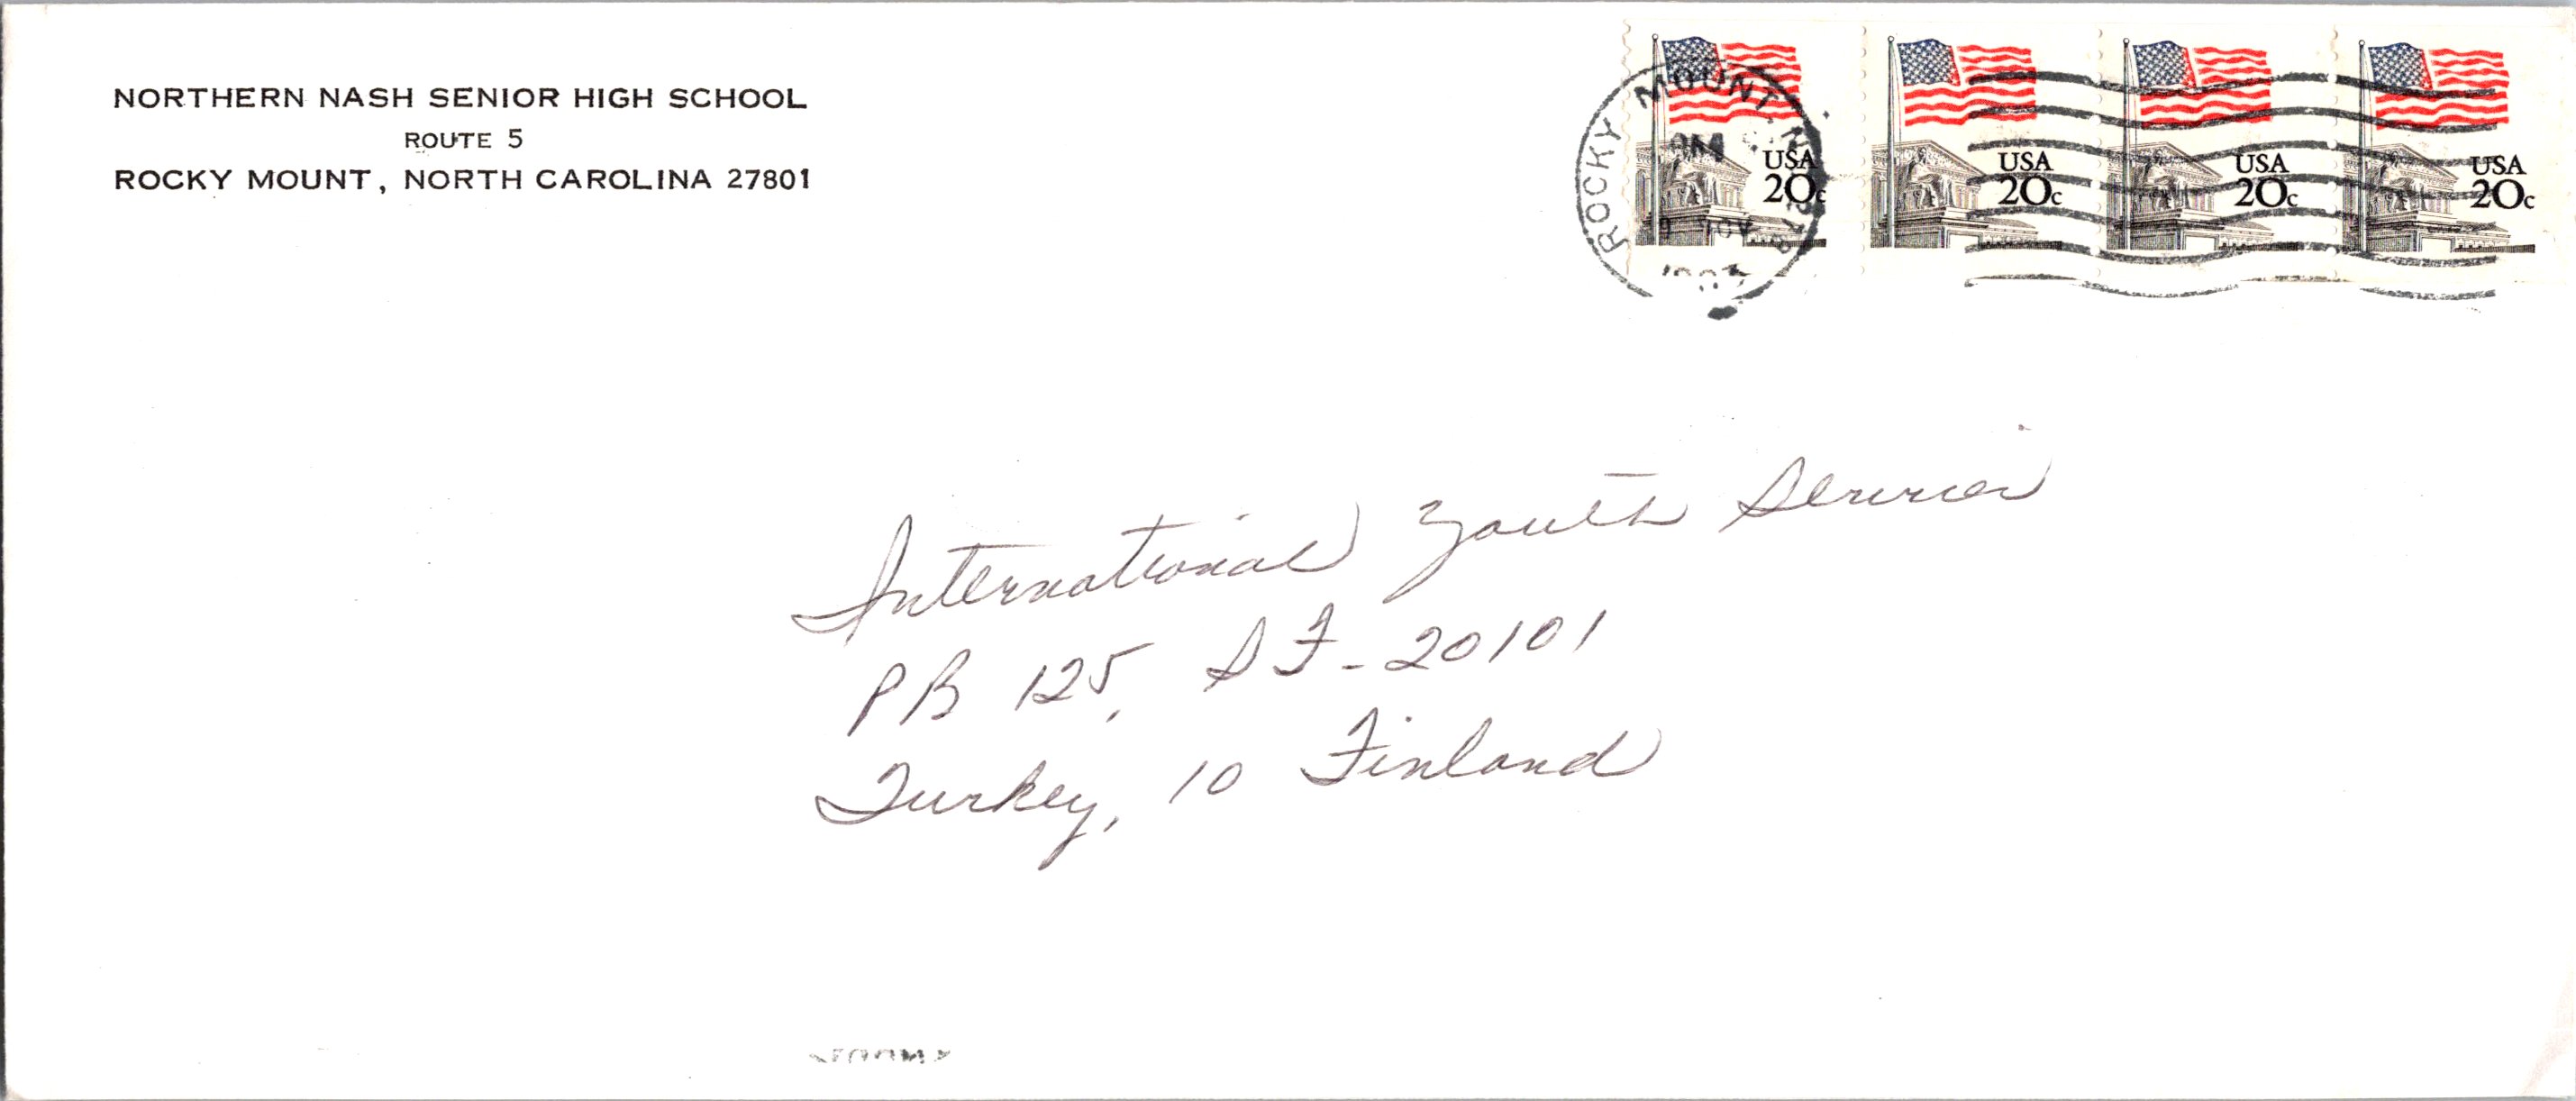 NORTHERN NASH SENIOR HIGH SCHOOL
ROUTE 5
ROCKY MOUNT, NORTH CAROLINA 27801
ROCKY MOUNT, N.C.
PM
NOV
USA
20c
USA
20c
USA
20c
USA
20c
International Youth Service
PB 125, SF-20101
Turkey, 10 Finland